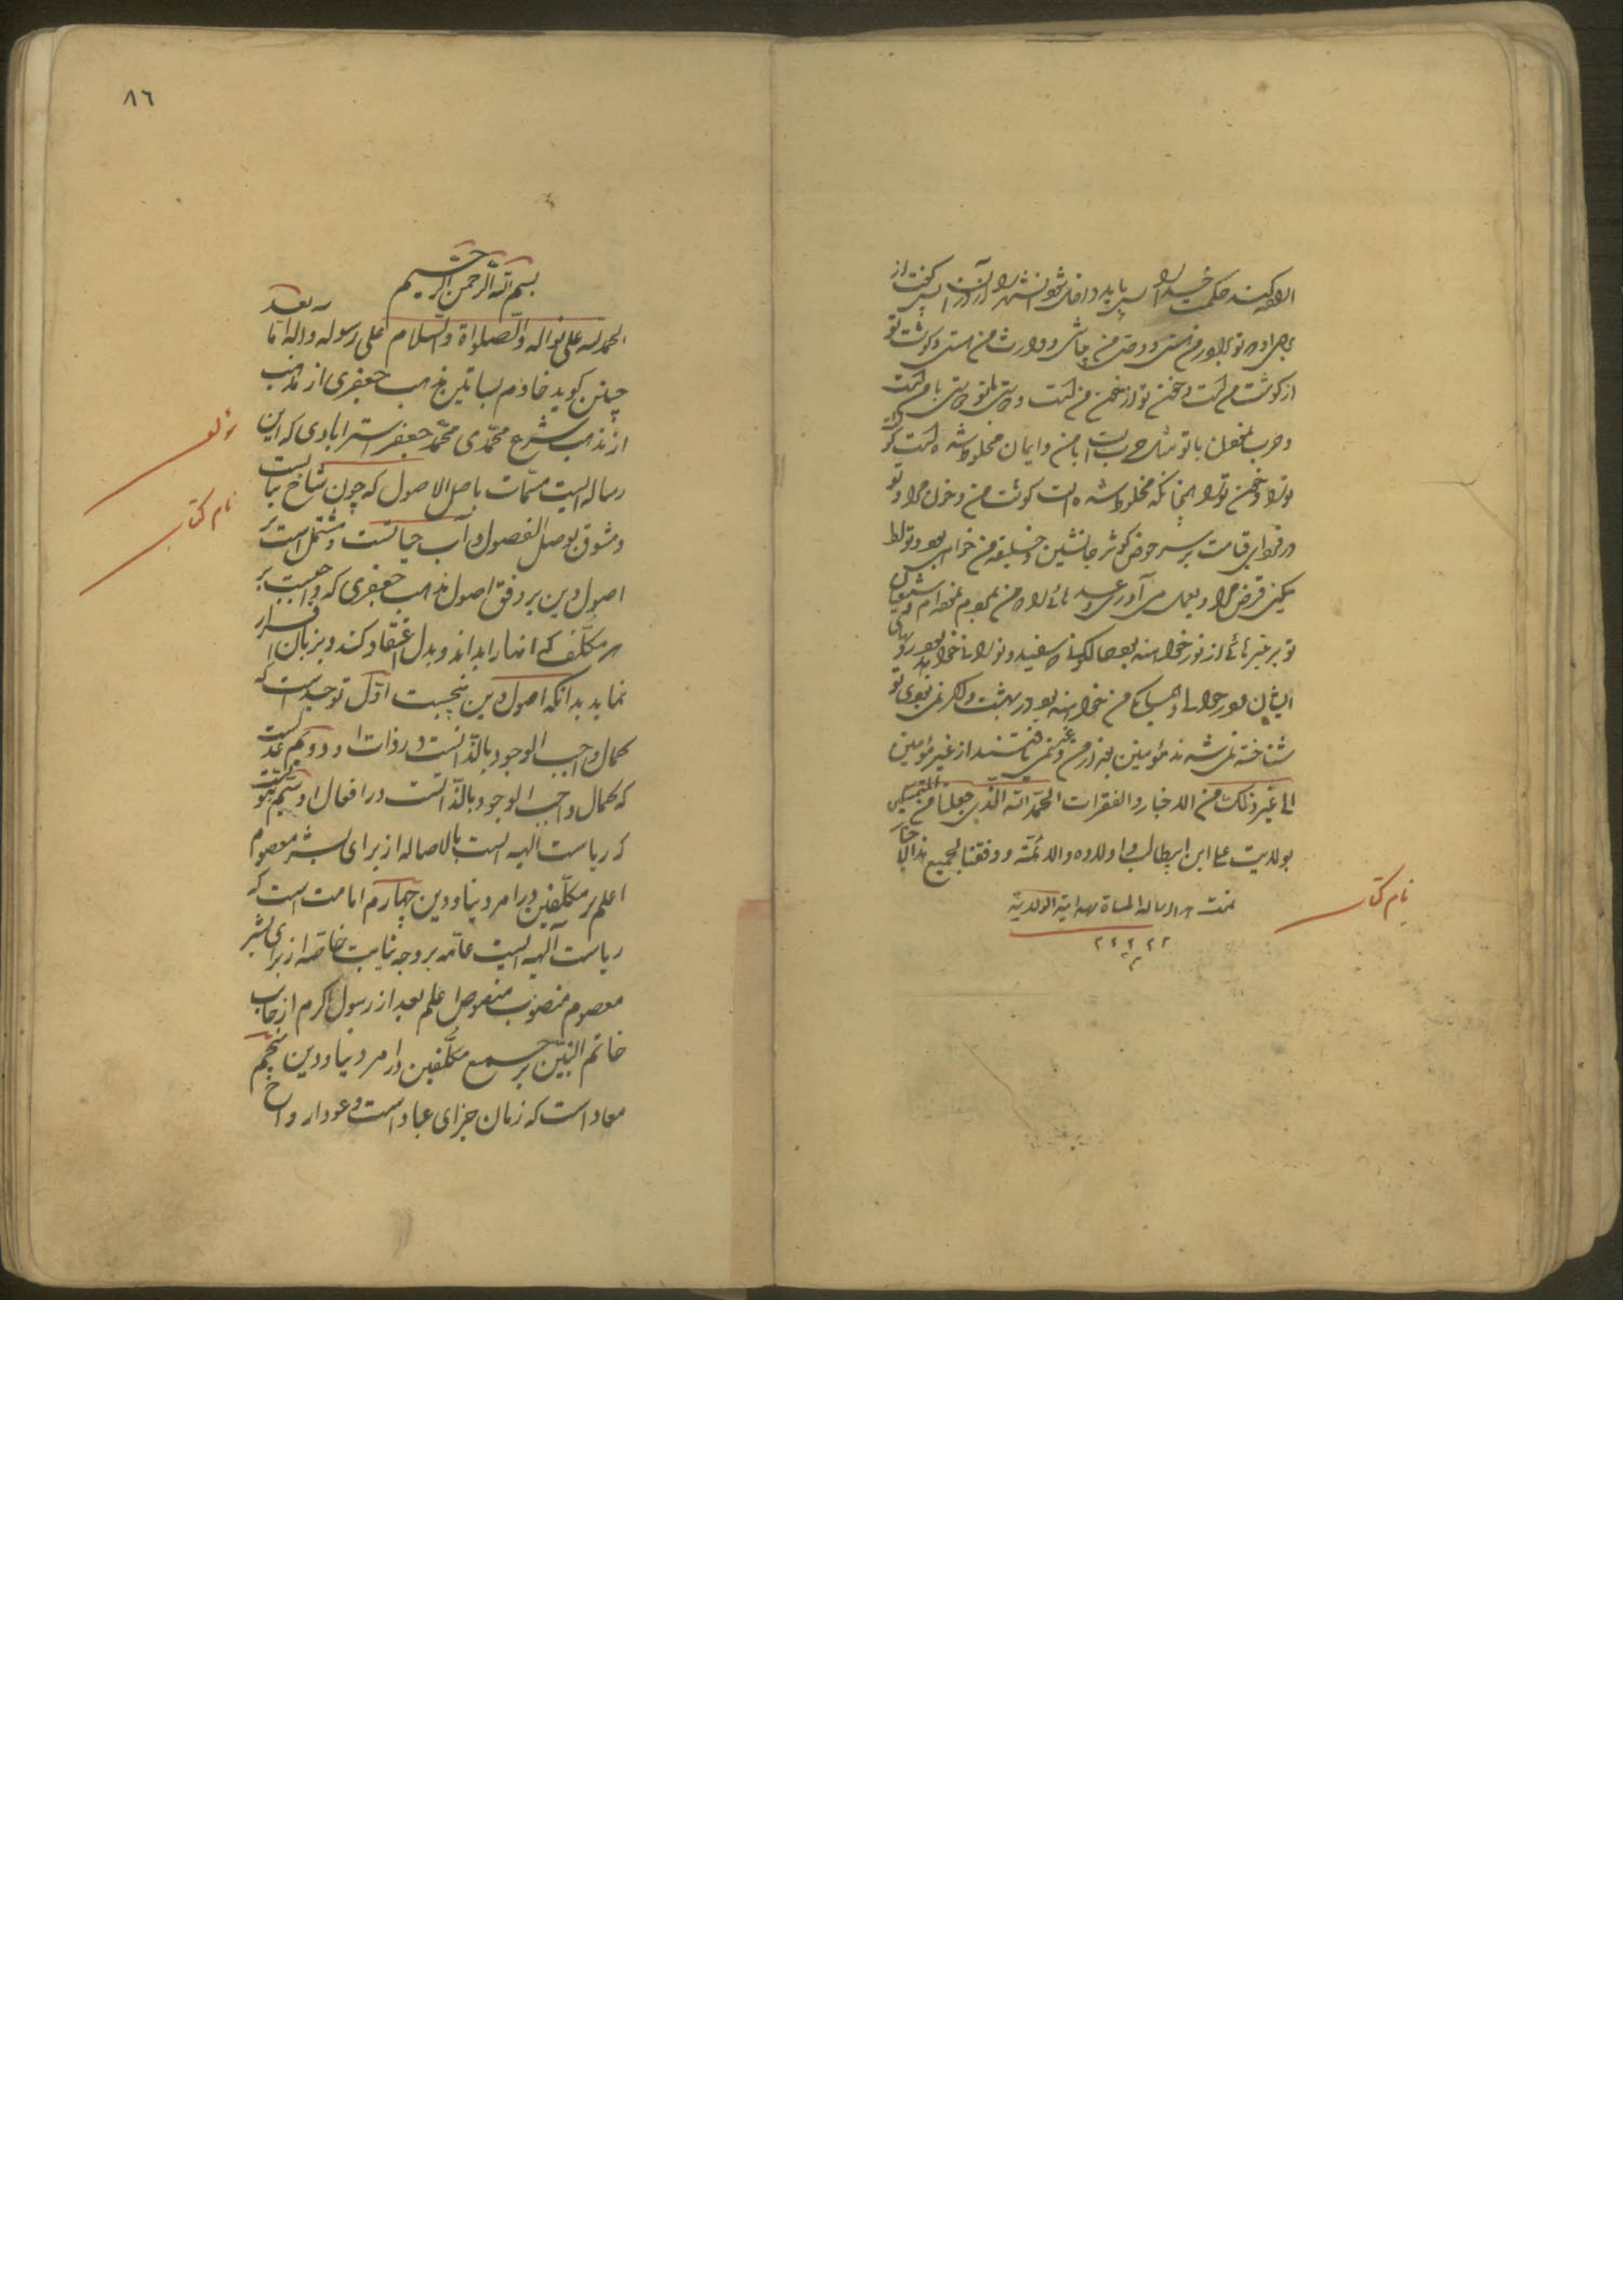 اراده کند حکمت خدا را پس باید داخل شود شهر را از در آن پس گفت از
برای او تو برادر من هستی و وصی من میباشی و وارث من هستی و گوشت تو
از گوشت من است و خون تو از خون من است
و حرب نمودن با تو مثل حرب است با من و ایمان مخلوط شده است گوشت
تو را و خون تو را همچنانکه مخلوط شده است گوشت من و خون مرا و تو
در فردای قیامت بر سر حوض کوثر جانشین و خلیفه من خواهی بود و تو ادا
میکنی قرض مرا و بعمل می آوری وعده های مرا و شیعیان
تو بر منبرهای از نور خواهند بود
ایشان دور و همسایهای من خواهند بود در بهشت و اگر نمی بودی تو
شناخته نمی شدند مؤمنین بعد از من از غیر مؤمنین
الی غیر ذلک من الاخبار والفقرات الحمد لله الذی جعلنا من المتمسکین
بولایت علی ابن ابیطالب و اولاده والائمة ووفقنا لجمیع
تمت الرساله المسماة بهدایة الولدیة
نام کتاب
٨٦
بسم الله الرحمن الرحیم
الحمد لله علی نواله والصلواة والسلام علی رسوله واله اما بعد
چنین گوید خادم بساتین مذهب جعفری از مذاهب
از مذهب شرع محمدی محمد جعفر استرابادی که این
مؤلف
رساله ایست مسمات باصل الاصول که چون شاخ نباتست
نام کتاب
و مشوق بوصل الفصول و آب حیاتست و مشتمل است بر
اصول دین بر وفق اصول مذهب جعفری که واجبست بر
هر مکلف که انها را بداند و بدل اعتقاد کند و بزبان اقرار
نماید بدانکه اصول دین پنجست اول توحید است که
کمال واجب الوجود بالذاتست در ذات او دویم عدلست
که کمال واجب الوجود بالذاتست در افعال او سیم نبوتست
که ریاست الهیه است بالاصاله از برای بشر معصوم
اعلم بر مکلفین در امر دنیا و دین چهارم امامت است که
ریاست الهیه ایست عامه بر وجه نیابت خاصه از برای بشر
معصوم منصوب منصوص اعلم بعد از رسول اکرم از جانب
خاتم النبیین بر جمیع مکلفین در امر دنیا و دین پنجم
معاد است که زمان جزای عباد است و عود ارواح